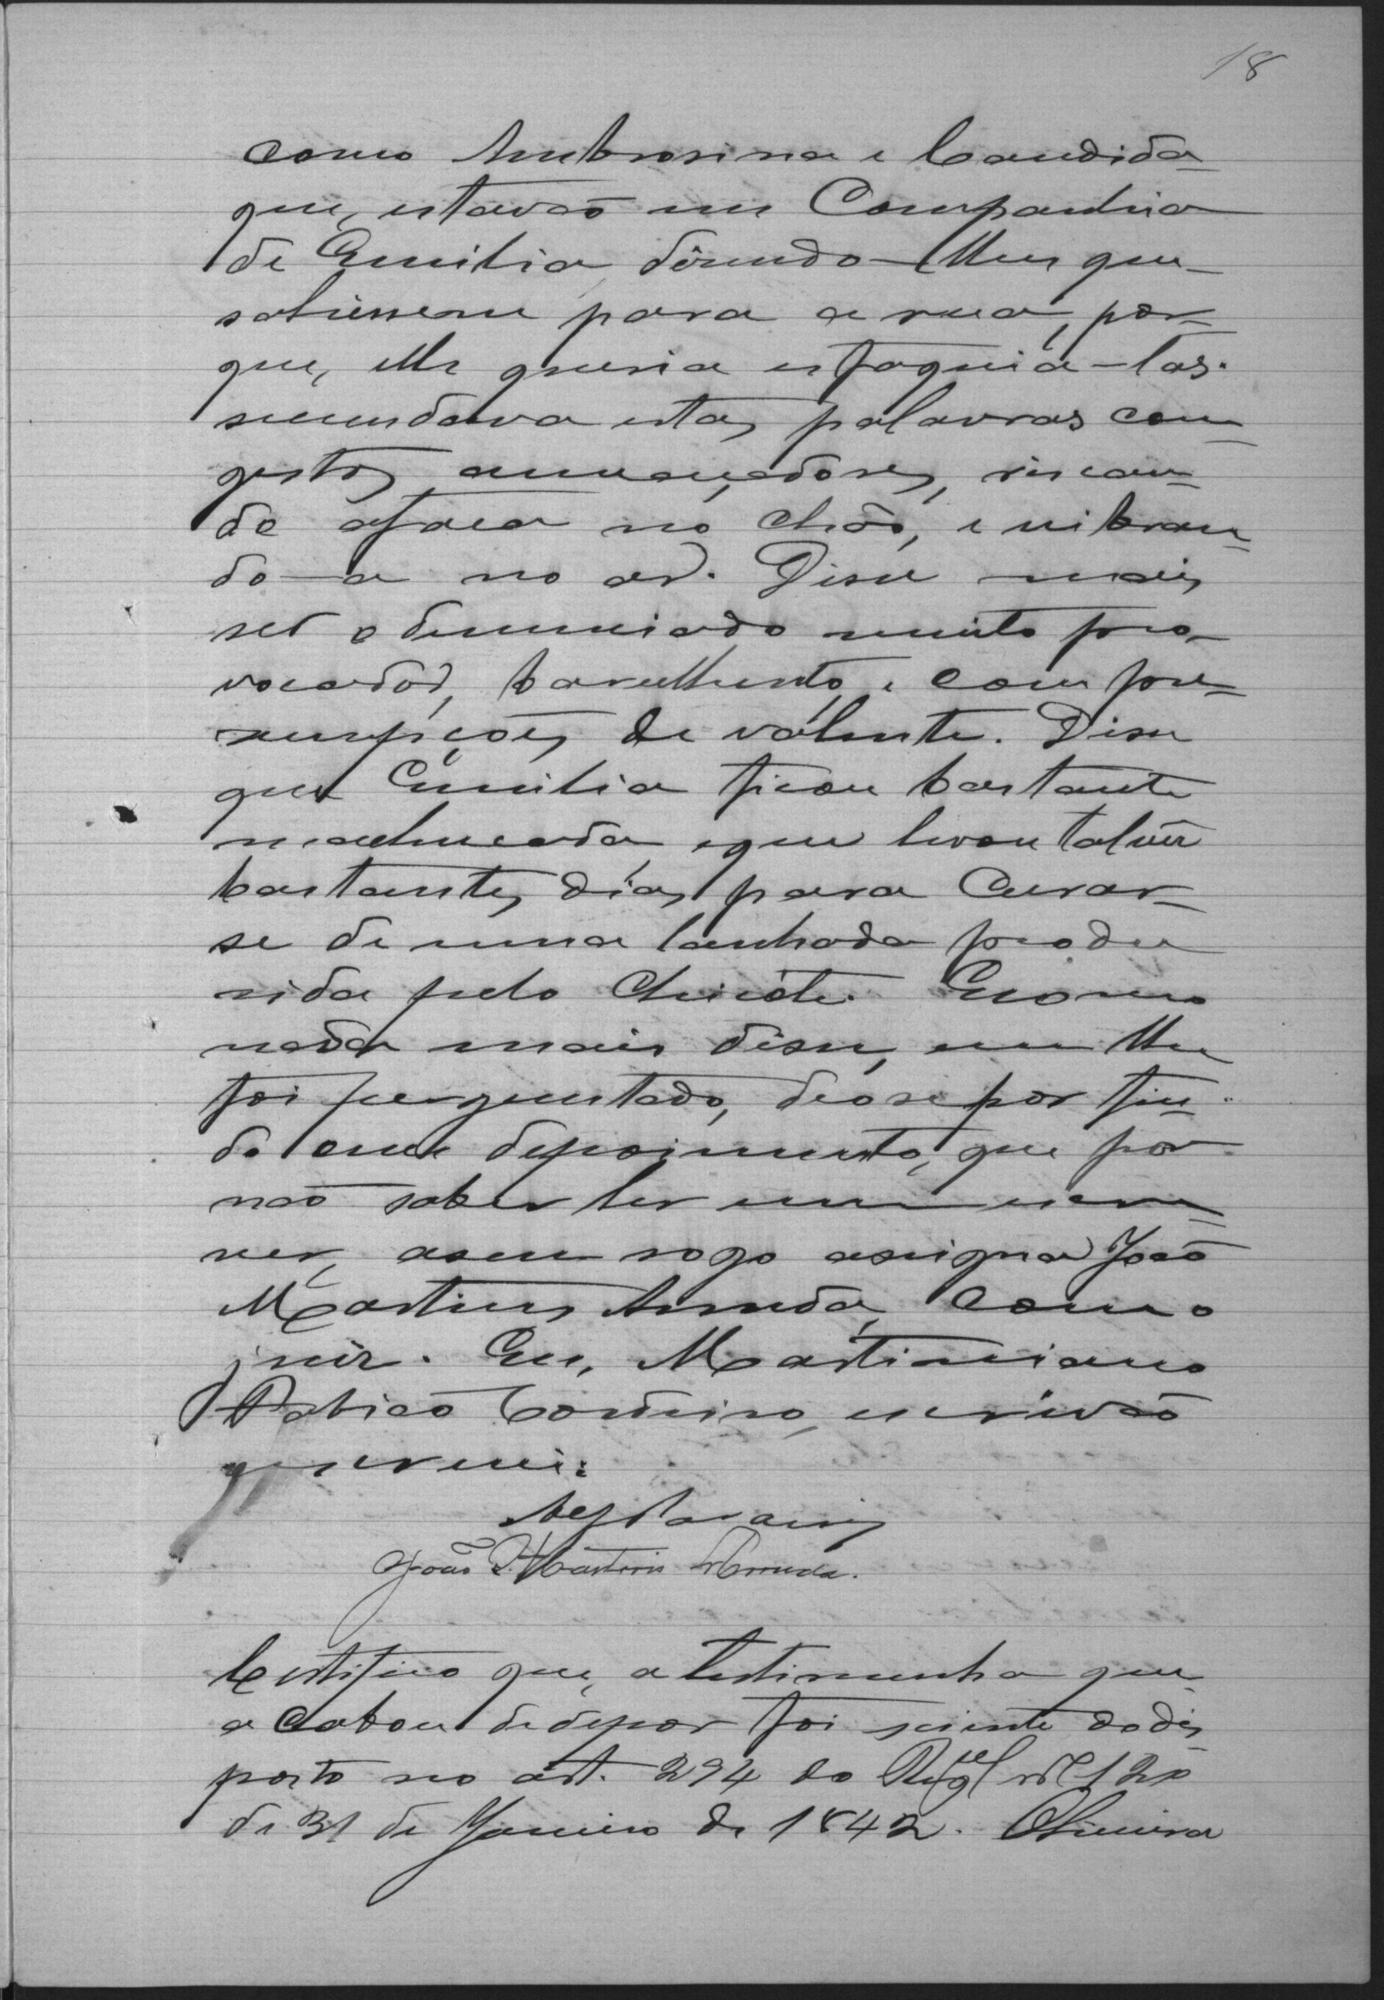 18
como Ambrosina e Candida
que, estavão em Companhia
de Emilia, disendo-lhes que
sahissem para a rua, por-
que, elle queria esfaqueá-las.
secundava estas palavras com
gestos ameaçadores, riscan-
do a faca no chão, e vibran-
do-a no ar. Disse mais
ser o denunciado muito pro-
vocador, barulhento, e com pre-
sumpções de valente. Disse
que Emilia ficou bastante
machucada, e que levou talvês
bastantes dias para curar-
se de uma lanhada produ
sida pelo chicote. E como
nada mais disse, nem lhe
foi perguntado, deo se por fin-
do o seu depoimento, que por
não saber ler nem escre-
ver, a seu rogo assigna João
Martins Arruda, com o
juiz. Eu, Martiniano
Cordeiro, escrivão
que escrevi.
João Martins Arruda.
Certifico que, a testimunha que
acabou de depor foi sciente do dis
posto no art. 294 do Regl nº 120
de 31 de Janeiro de 1842. Oliveira